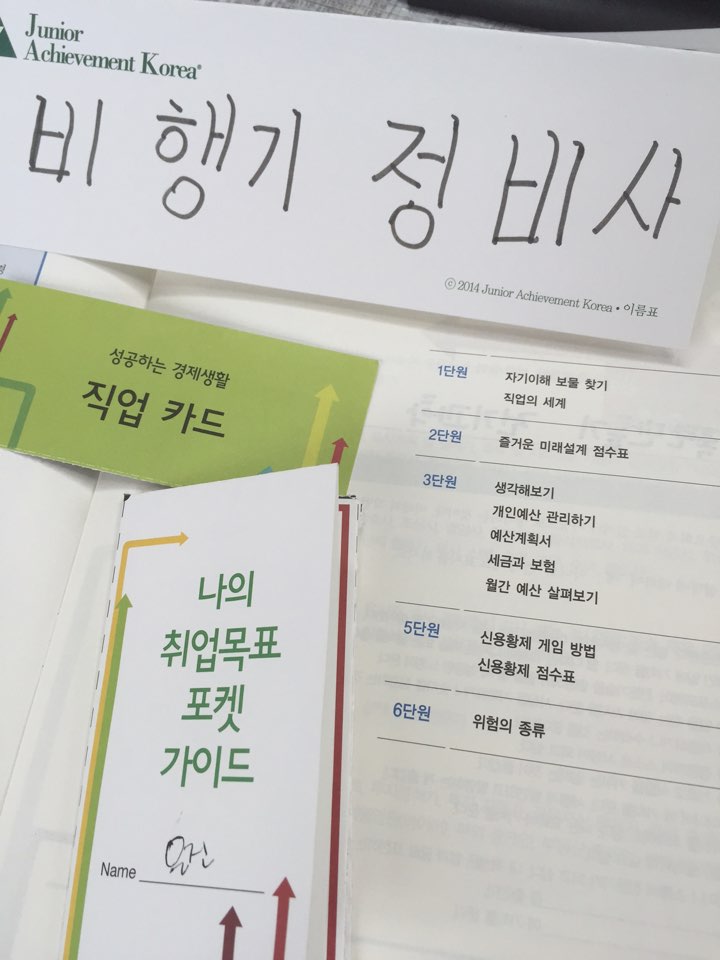 Junior
Achievement Korea®
비행기 정비사
ⓒ 2014 Junior Achievement Korea • 이름표
성공하는 경제생활
직업 카드
1단원 자기이해 보물 찾기
직업의 세계
2단원 즐거운 미래설계 점수표
3단원 생각해보기
개인예산 관리하기
예산계획서
세금과 보험
월간 예산 살펴보기
5단원 신용황제 게임 방법
신용황제 점수표
6단원 위험의 종류
나의
취업목표
포켓
가이드
Name